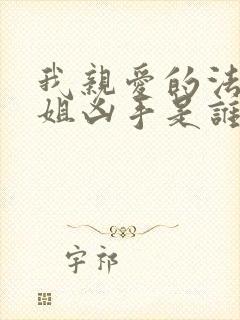 我親愛的法
姐凶手是誰
宇祁